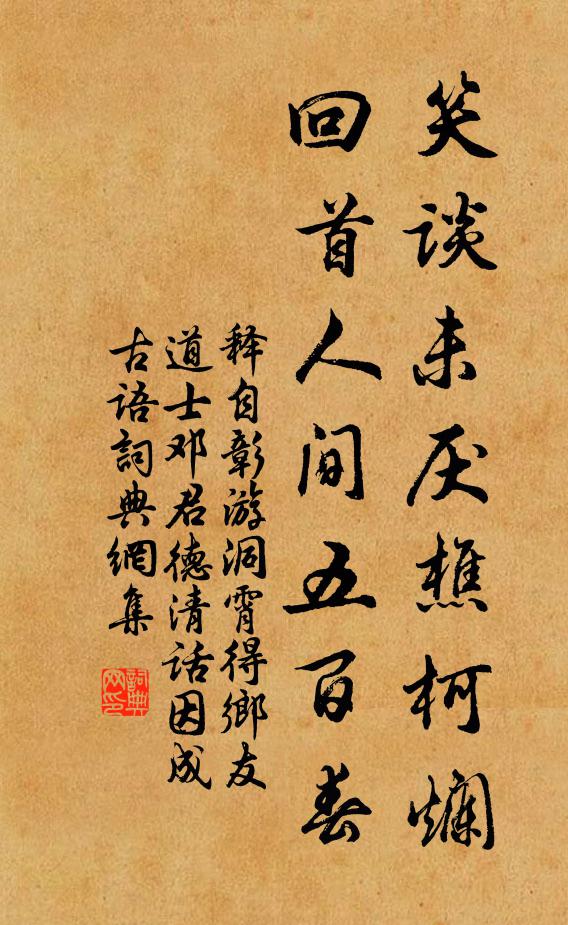 笑谈未厌樵柯爛
回首人间五百春
释自彰游洞霄得鄉友
道士邓君德清话因成
古语詞典網集
詞典網印